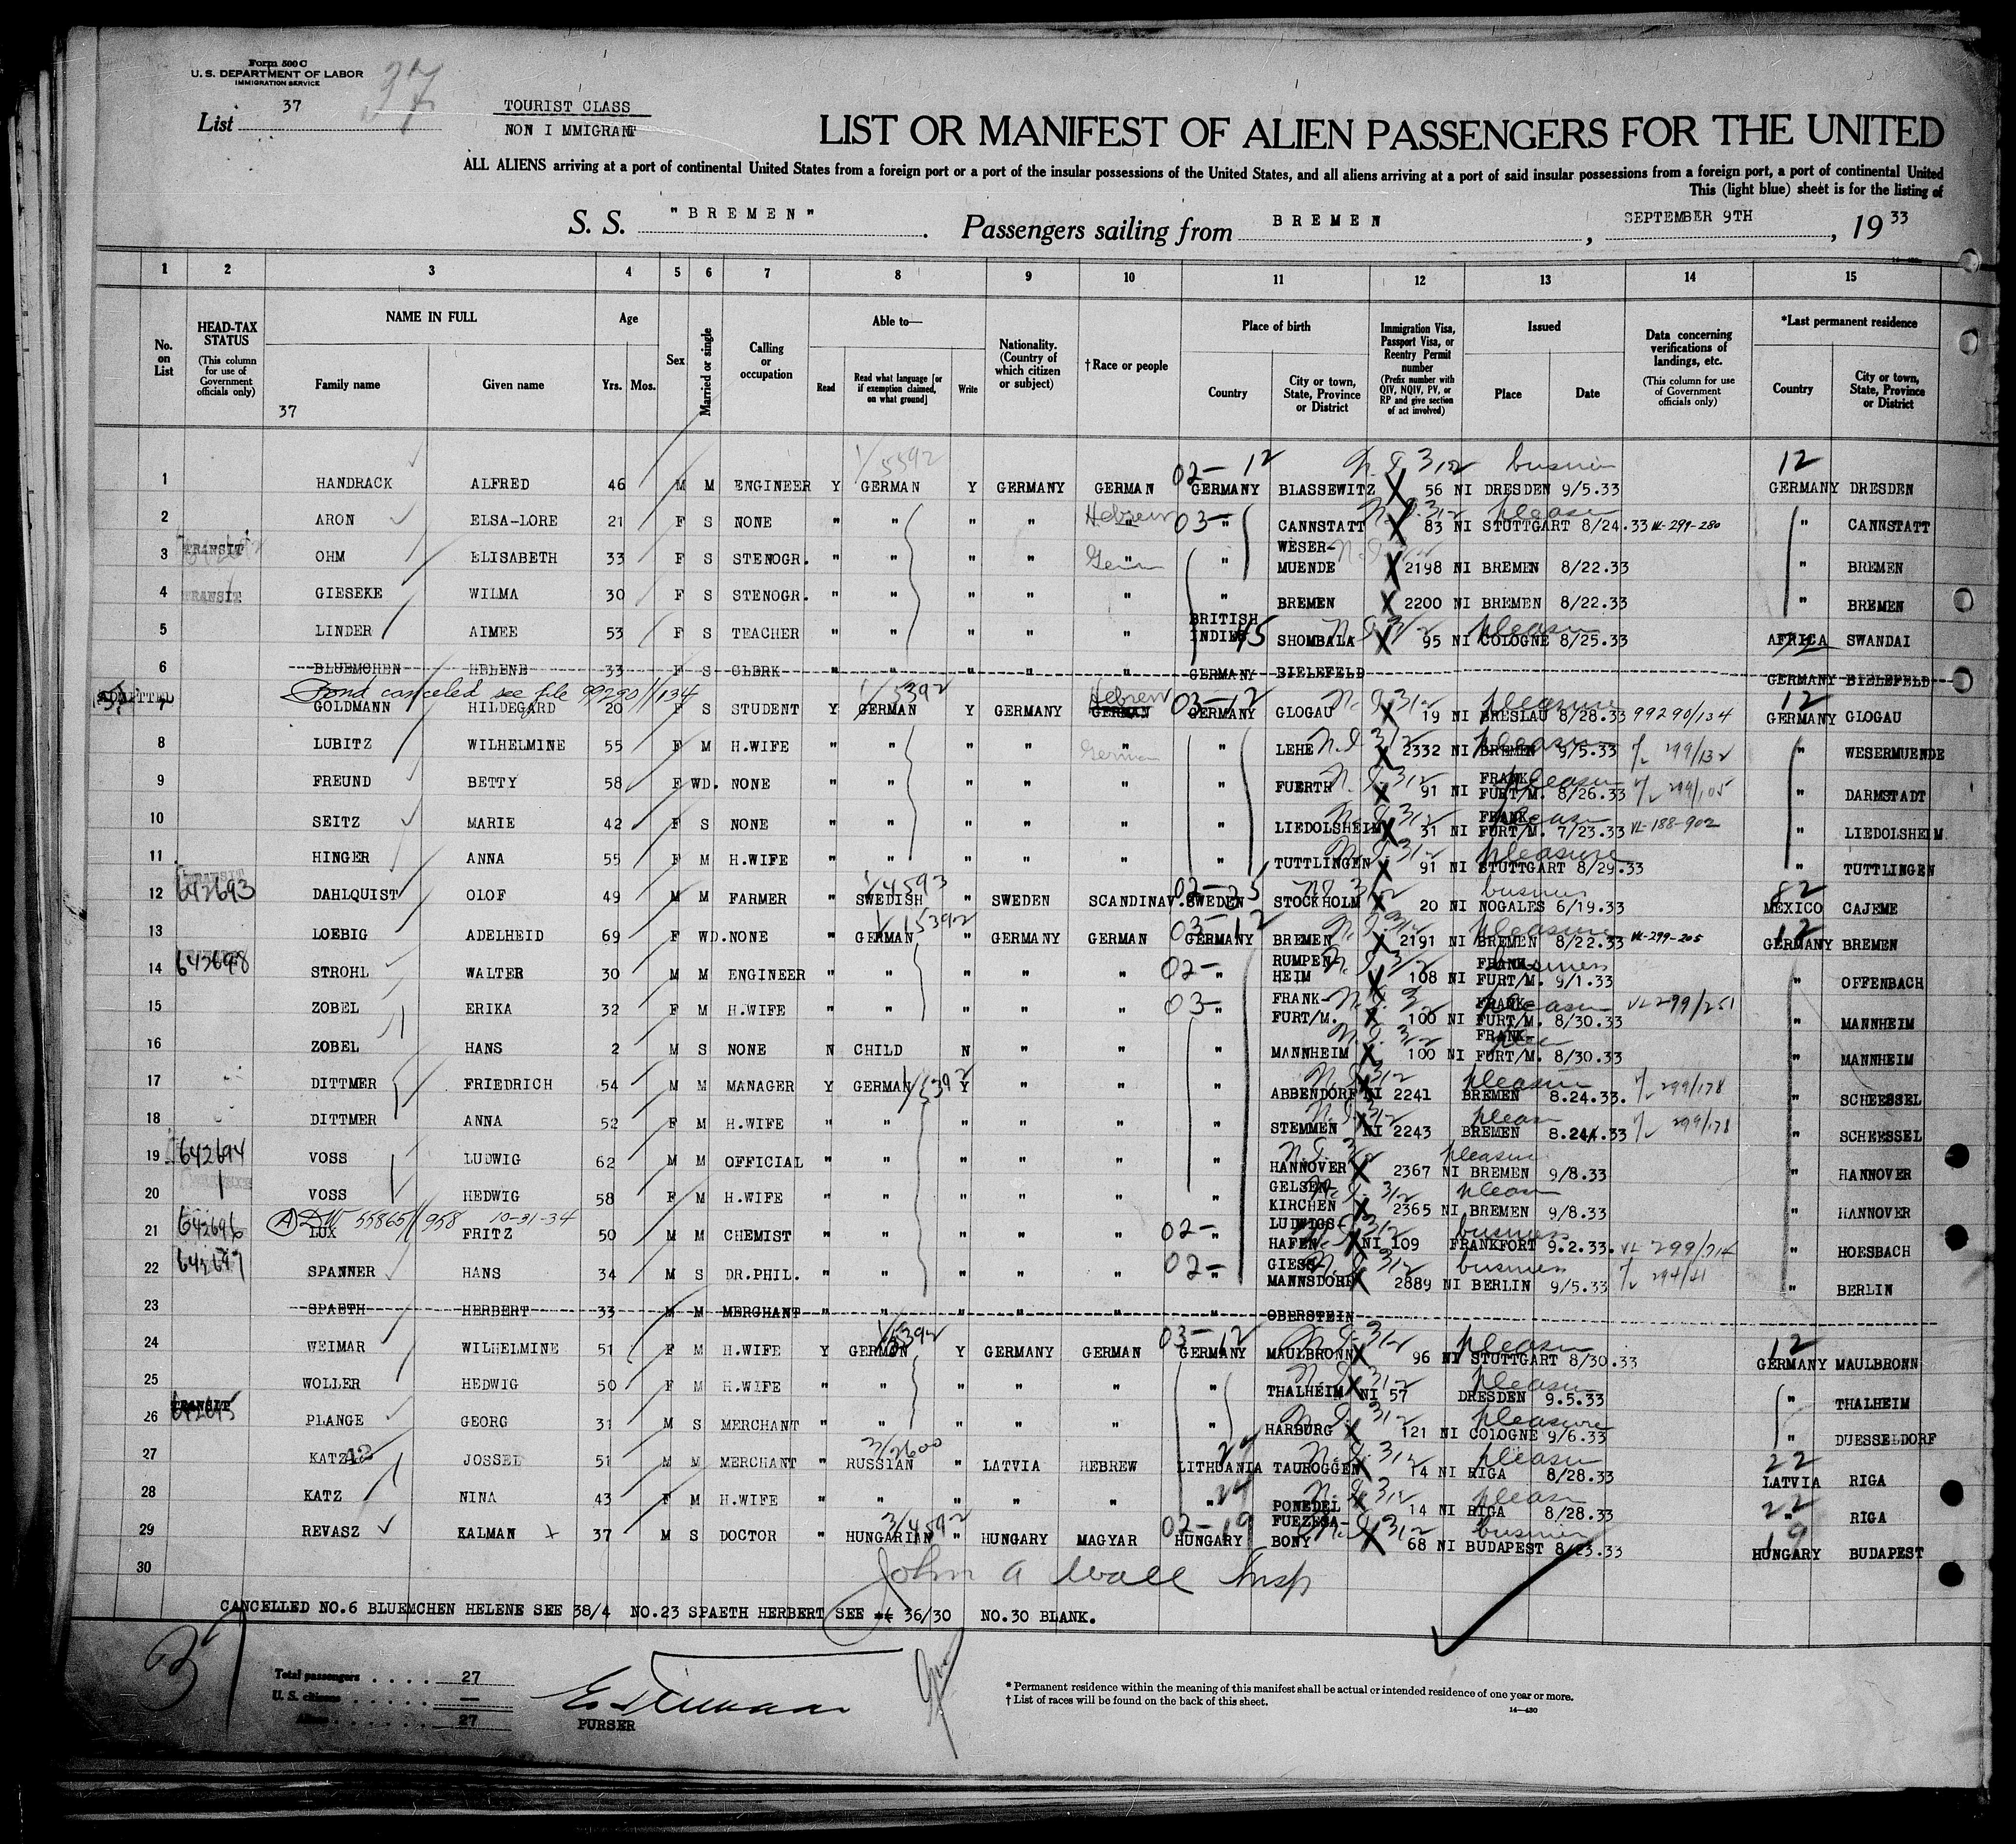 Form 500 C
U. S. DEPARTMENT OF LABOR
IMMIGRATION SERVICE
List 37 37
TOURIST CLASS
NON I MMIGRANT
LIST OR MANIFEST OF ALIEN PASSENGERS FOR THE UNITED
ALL ALIENS arriving at a port of continental United States from a foreign port or a port of the insular possessions of the United States, and all aliens arriving at a port of said insular possessions from a foreign port, a port of continental United
This (light blue) sheet is for the listing of
S. S. "BREMEN". Passengers sailing from BREMEN, SEPTEMBER 9TH, 19 33
1 2 3 4 5 6 7 8 9 10 11 12 13 14 15
No. on List
HEAD-TAX STATUS (This column for use of Government officials only)
NAME IN FULL Family name Given name
37
Age Yrs. Mos.
Sex
Married or single
Calling or occupation
Able to— Read Read what language [or if exemption claimed, on what ground] Write
Nationality. (Country of which citizen or subject)
†Race or people
Place of birth Country City or town, State, Province or District
Immigration Visa, Passport Visa, or Reentry Permit number (Prefix number with QIV, NQIV, PV, or RP and give section of act involved)
Issued Place Date
Data concerning verifications of landings, etc. (This column for use of Government officials only)
*Last permanent residence Country City or town, State, Province or District
1/5392 02-12 N.I. 3/2 12
1 HANDRACK ALFRED 46 M M ENGINEER Y GERMAN Y GERMANY GERMAN GERMANY BLASSEWITZ X 56 NI DRESDEN 9/5.33 GERMANY DRESDEN
2 ARON ELSA-LORE 21 F S NONE " " " " Hebrew 03- " CANNSTATT X 83 NI STUTTGART 8/24.33 VL-299-280 " CANNSTATT
3 TRANSIT OHM ELISABETH 33 F S STENOGR. " " " " " " WESER-MUENDE X 2198 NI BREMEN 8/22.33 " BREMEN
4 TRANSIT GIESEKE WILMA 30 F S STENOGR. " " " " " " BREMEN X 2200 NI BREMEN 8/22.33 " BREMEN
5 LINDER AIMEE 53 F S TEACHER " " " " " BRITISH INDIES 45 SHOMBALA X 95 NI COLOGNE 8/25.33 AFRICA SWANDAI
6 BLUEMCHEN HELENE 33 F S CLERK " " " " " GERMANY BIELEFELD GERMANY BIELEFELD
ADMITTED Bond canceled see file 99290/134
7 GOLDMANN HILDEGARD 20 F S STUDENT Y GERMAN Y GERMANY Hebrew GERMAN 03-12 GERMANY GLOGAU X 19 NI BRESLAU 8/28.33 pleasure 99290/134 12 GERMANY GLOGAU
8 LUBITZ WILHELMINE 55 F M H.WIFE " " " " German " " LEHE X 2332 NI BREMEN 9/5.33 299/132 " WESERMUENDE
9 FREUND BETTY 58 F WD. NONE " " " " " " FUERTH X 91 NI FRANK-FURT/M. 8/26.33 299/105 " DARMSTADT
10 SEITZ MARIE 42 F S NONE " " " " " " LIEDOLSHEIM X 31 NI FRANK-FURT/M. 7/23.33 VL-188-902 " LIEDOLSHEIM
11 HINGER ANNA 55 F M H.WIFE " " " " " " TUTTLINGEN X 91 NI STUTTGART 8/29.33 pleasure " TUTTLINGEN
12 642693 DAHLQUIST OLOF 49 M M FARMER " SWEDISH " SWEDEN SCANDINAV. SWEDEN STOCKHOLM X 20 NI NOGALES 6/19.33 82 MEXICO CAJEME
13 LOEBIG ADELHEID 69 F WD. NONE " GERMAN " GERMANY GERMAN 03-12 GERMANY BREMEN X 2191 NI BREMEN 8/22.33 pleasure VL-299-205 12 GERMANY BREMEN
14 643698 STROHL WALTER 30 M M ENGINEER " " " " " 02- " RUMPEN-HEIM X 108 NI FRANK-FURT/M. 9/1.33 business " OFFENBACH
15 ZOBEL ERIKA 32 F M H.WIFE " " " " " 03- " FRANK-FURT/M. X 100 NI FRANK-FURT/M. 8/30.33 VL 299/251 " MANNHEIM
16 ZOBEL HANS 2 M S NONE N CHILD N " " " MANNHEIM X 100 NI FRANK-FURT/M. 8/30.33 " MANNHEIM
17 DITTMER FRIEDRICH 54 M M MANAGER Y GERMAN Y " " " ABBENDORF NI 2241 BREMEN 8.24.33. 299/178 " SCHEESSEL
18 DITTMER ANNA 52 F M H.WIFE " " " " " " STEMMEN NI 2243 BREMEN 8.24.33 299/178 " SCHEESSEL
19 642694 VOSS LUDWIG 62 M M OFFICIAL " " " " " " HANNOVER X 2367 NI BREMEN 9/8.33 " HANNOVER
20 VOSS HEDWIG 58 F M H.WIFE " " " " " " GELSEN-KIRCHEN X 2365 NI BREMEN 9/8.33 " HANNOVER
55865/958 10-31-34
21 642696 LUX FRITZ 50 M M CHEMIST " " " " " 02- " LUDWIGS-HAFEN X NI 109 FRANKFORT 9.2.33. business " HOESBACH
22 642697 SPANNER HANS 34 M S DR.PHIL. " " " " " 02- " GIESS-MANNSDORF X 2889 NI BERLIN 9/5.33 business 294/41 " BERLIN
23 SPAETH HERBERT 33 M M MERCHANT " " " " " " OBERSTEIN
24 WEIMAR WILHELMINE 51 F M H.WIFE Y GERMAN Y GERMANY GERMAN 03-12 GERMANY MAULBRONN X 96 NI STUTTGART 8/30.33 12 GERMANY MAULBRONN
25 WOLLER HEDWIG 50 F M H.WIFE " " " " " " THALHEIM X NI 57 DRESDEN 9.5.33 " THALHEIM
26 TRANSIT 642695 PLANGE GEORG 31 M S MERCHANT " " " " " " HARBURG X 121 NI COLOGNE 9/6.33 pleasure " DUESSELDORF
27 KATZ JOSSEL 51 M M MERCHANT " RUSSIAN " LATVIA HEBREW LITHUANIA TAUROGGEN X 14 NI RIGA 8/28.33 22 LATVIA RIGA
28 KATZ NINA 43 F M H.WIFE " " " " " " PONEDEL X 14 NI RIGA 8/28.33 22 " RIGA
29 REVASZ KALMAN 37 M S DOCTOR " HUNGARIAN " HUNGARY MAGYAR 02-19 HUNGARY FUEZESA-BONY X 68 NI BUDAPEST 8/23.33 19 HUNGARY BUDAPEST
30
John A Wall Insp
CANCELLED NO.6 BLUEMCHEN HELENE SEE 38/4 NO.23 SPAETH HERBERT SEE 36/30 NO.30 BLANK.
37
Total passengers . . . . 27
U. S. citizens . . . . . —
Aliens . . . . . 27
PURSER
* Permanent residence within the meaning of this manifest shall be actual or intended residence of one year or more.
† List of races will be found on the back of this sheet.
14—430